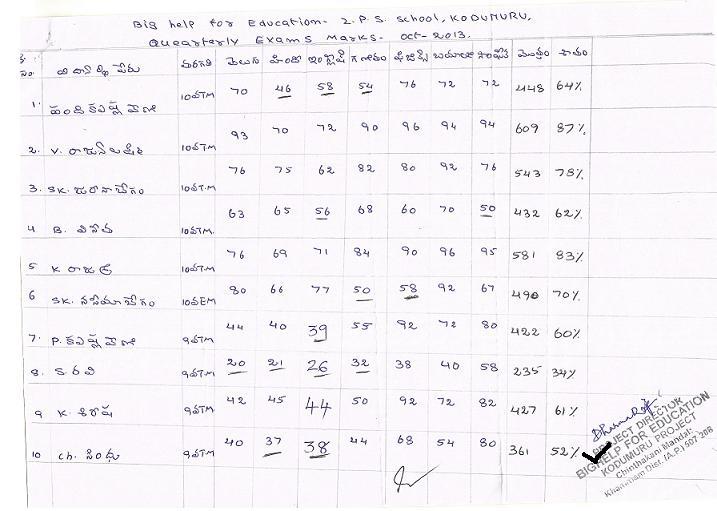 Big help for Education- Z.P.S. School, KODUMURU,
Quearterly Exams Marks- Oct-2013.
విద్యార్థి పేరు తరగతి తెలుగు హిందీ ఇంగ్లీష్ గణితం మొత్తం శాతం
1. 10వTM 70 46 58 54 76 72 72 448 64%
2. V. 10వTM 93 70 72 90 96 94 94 609 87%
3. SK. 10వTM 76 75 62 82 80 92 76 543 78%
4 B. 10వTM. 63 65 56 68 60 70 50 432 62%
5 K 10వTM 76 69 71 84 90 96 95 581 83%
6 SK. 10వEM 80 66 77 50 58 92 67 490 70%
7. P. 9వTM 44 40 39 55 92 72 80 422 60%
8. S. రవి 9వTM 20 21 26 32 38 40 58 235 34%
9 K. 9వTM 42 45 44 50 92 72 82 427 61%
10 Ch. సింధు 9వTM 40 37 38 44 68 54 80 361 52%
PROJECT DIRECTOR
BIGHELP FOR EDUCATION
KODUMURU PROJECT
Chinthakani Mandal,
Khammam Dist. (A.P.) 507 208